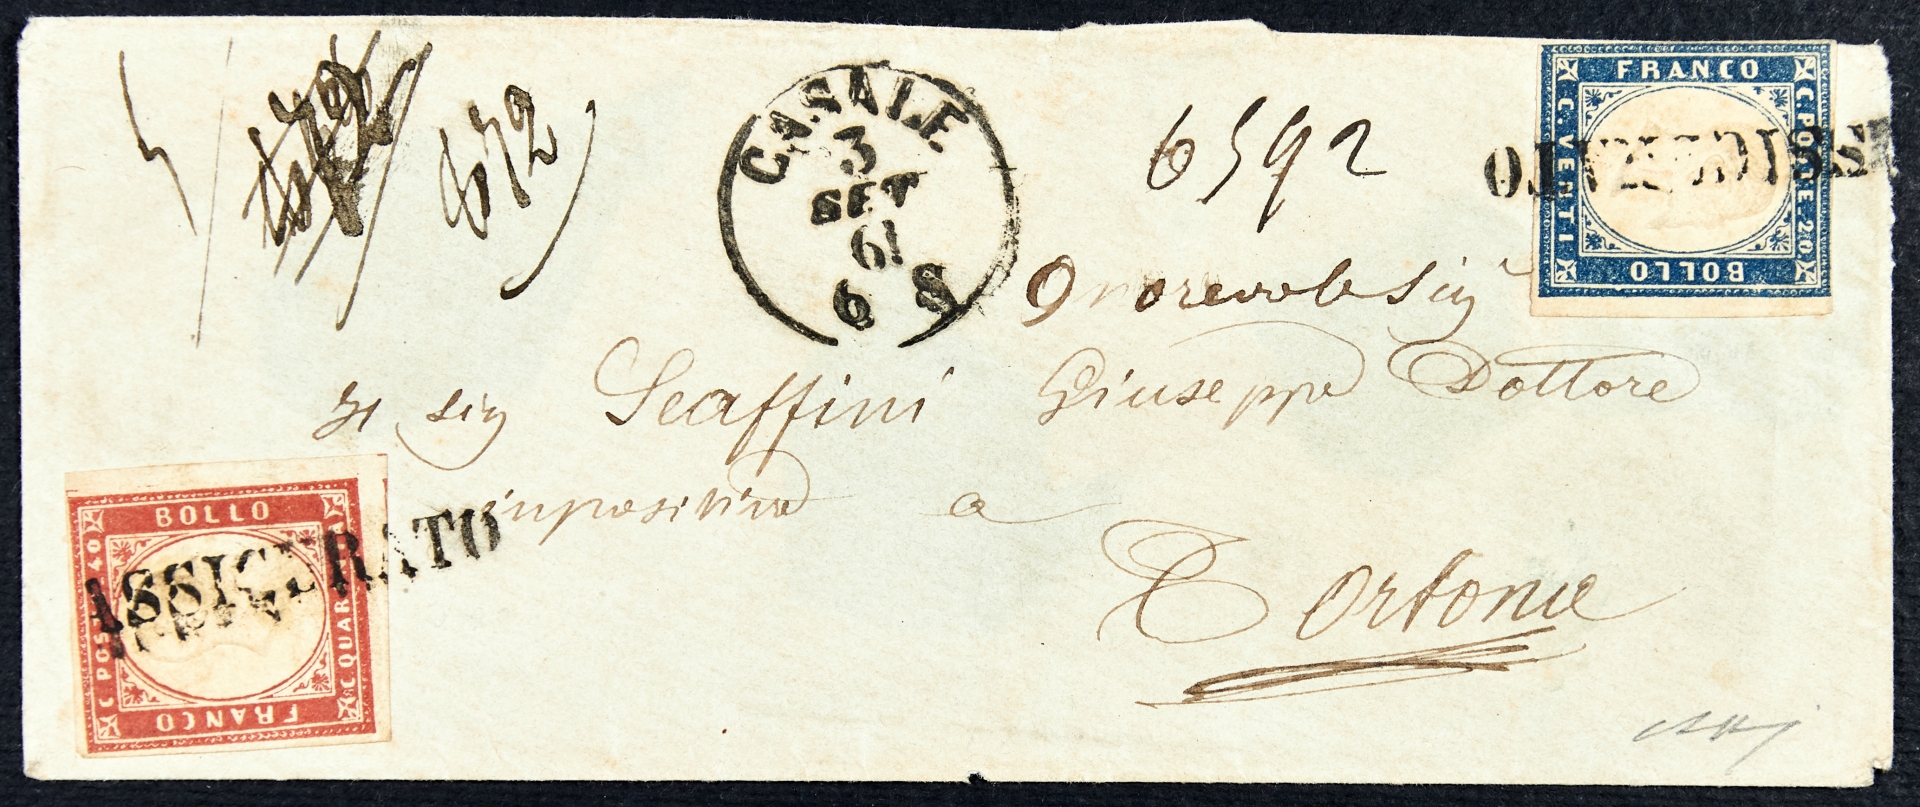 672
CASALE
3
SET
61
6 S
6592
FRANCO
C. VENTI
C. POSTE 20
BOLLO
ASSICURATO
Onorevole Sig
Sig Scaffini Giuseppe Dottore
a
Tortona
BOLLO
C. POSTE 40
C. QUARANTA
FRANCO
ASSICURATO